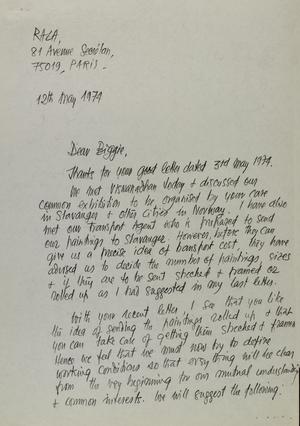 RAZA,
81 Avenue Secrétan,
75019, PARIS-
12th May 1979
Dear Biggie,
Thanks for your good letter dated 3rd May 1979.
We met Viswanadhan today & discussed our
common exhibition to be organised by your care
in Stavanger & other cities in Norway. I have also
met our transport Agent who is prepared to send
our paintings to Stavanger. However, before they can
give us a precise idea of transport cost, they have
advised us to decide the number of paintings, sizes
& if they are to be sent streched & framed or
rolled up as I had suggested in my last letter.
With your recent letter, I see that you like
the idea of sending the paintings rolled up & that
you can take care of getting them streched & framed
Hence we feel that we must now try to define
working conditions so that everything will be clear
from the very beginning for our mutual understanding
& common interests. We will suggest the following: